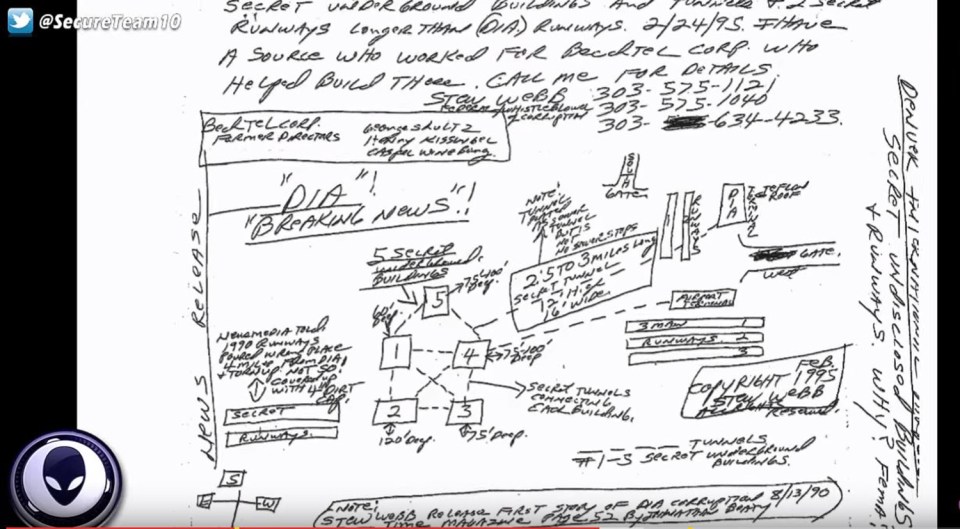 @SecureTeam10
SECRET UNDERGROUND BUILDINGS AND TUNNELS & 2 SECRET
RUNWAYS LONGER THAN (DIA) RUNWAYS. 2/24/95. I HAVE
A SOURCE WHO WORKED FOR BECHTEL CORP. WHO
HELPED BUILD THERE. CALL ME FOR DETAILS
STEW WEBB 303-575-1121
303-575-1040
WHISTLEBLOWER
OF CORRUPTION
303- 634-4233.
BECHTEL CORP.
FORMER DIRECTORS
GEORGE SHULTZ
HENRY KISSINGER
"DIA"!
"BREAKING NEWS"!!
NEWS RELEASE
5 SECRET
UNDERGROUND
BUILDINGS
5
75-100'
DEEP.
60'
DEEP
1
4
75-100'
DEEP
2
3
120' DEEP.
75' DEEP.
NOTE:
TUNNELS
2.5 TO 3 MILES LONG
SECRET TUNNEL
12' HIGH
16' WIDE.
SOUTH
GATE
RUNWAYS
DIA
TERMINAL
TEFLON
ROOF
GATE.
WEST
AIRPORT
TERMINAL
3 MAIN 1
RUNWAYS. 2
3
NEWSMEDIA TOLD:
1990 RUNWAYS
POURED WRONG PLACE
4 MILES FROM DIA
& TORN UP. NOT SO!
COVERED UP
WITH 4" DIRT
SECRET
RUNWAYS.
SECRET TUNNELS
CONNECTING
EACH BUILDING.
FEB.
COPYRIGHT 1995
STEW WEBB
ALL RIGHTS RESERVED.
TUNNELS
#1-5 SECRET UNDERGROUND
BUILDINGS.
S
E
W
NOTE: 8/13/90
STEW WEBB RELEASE FIRST STORY OF DIA CORRUPTION
TIME MAGAZINE PAGE 52 BY JONATHAN BEATY
DENVER INTERNATIONAL
SECRET UNDISCLOSED BUILDINGS
& RUNWAYS WHY? FEMA?